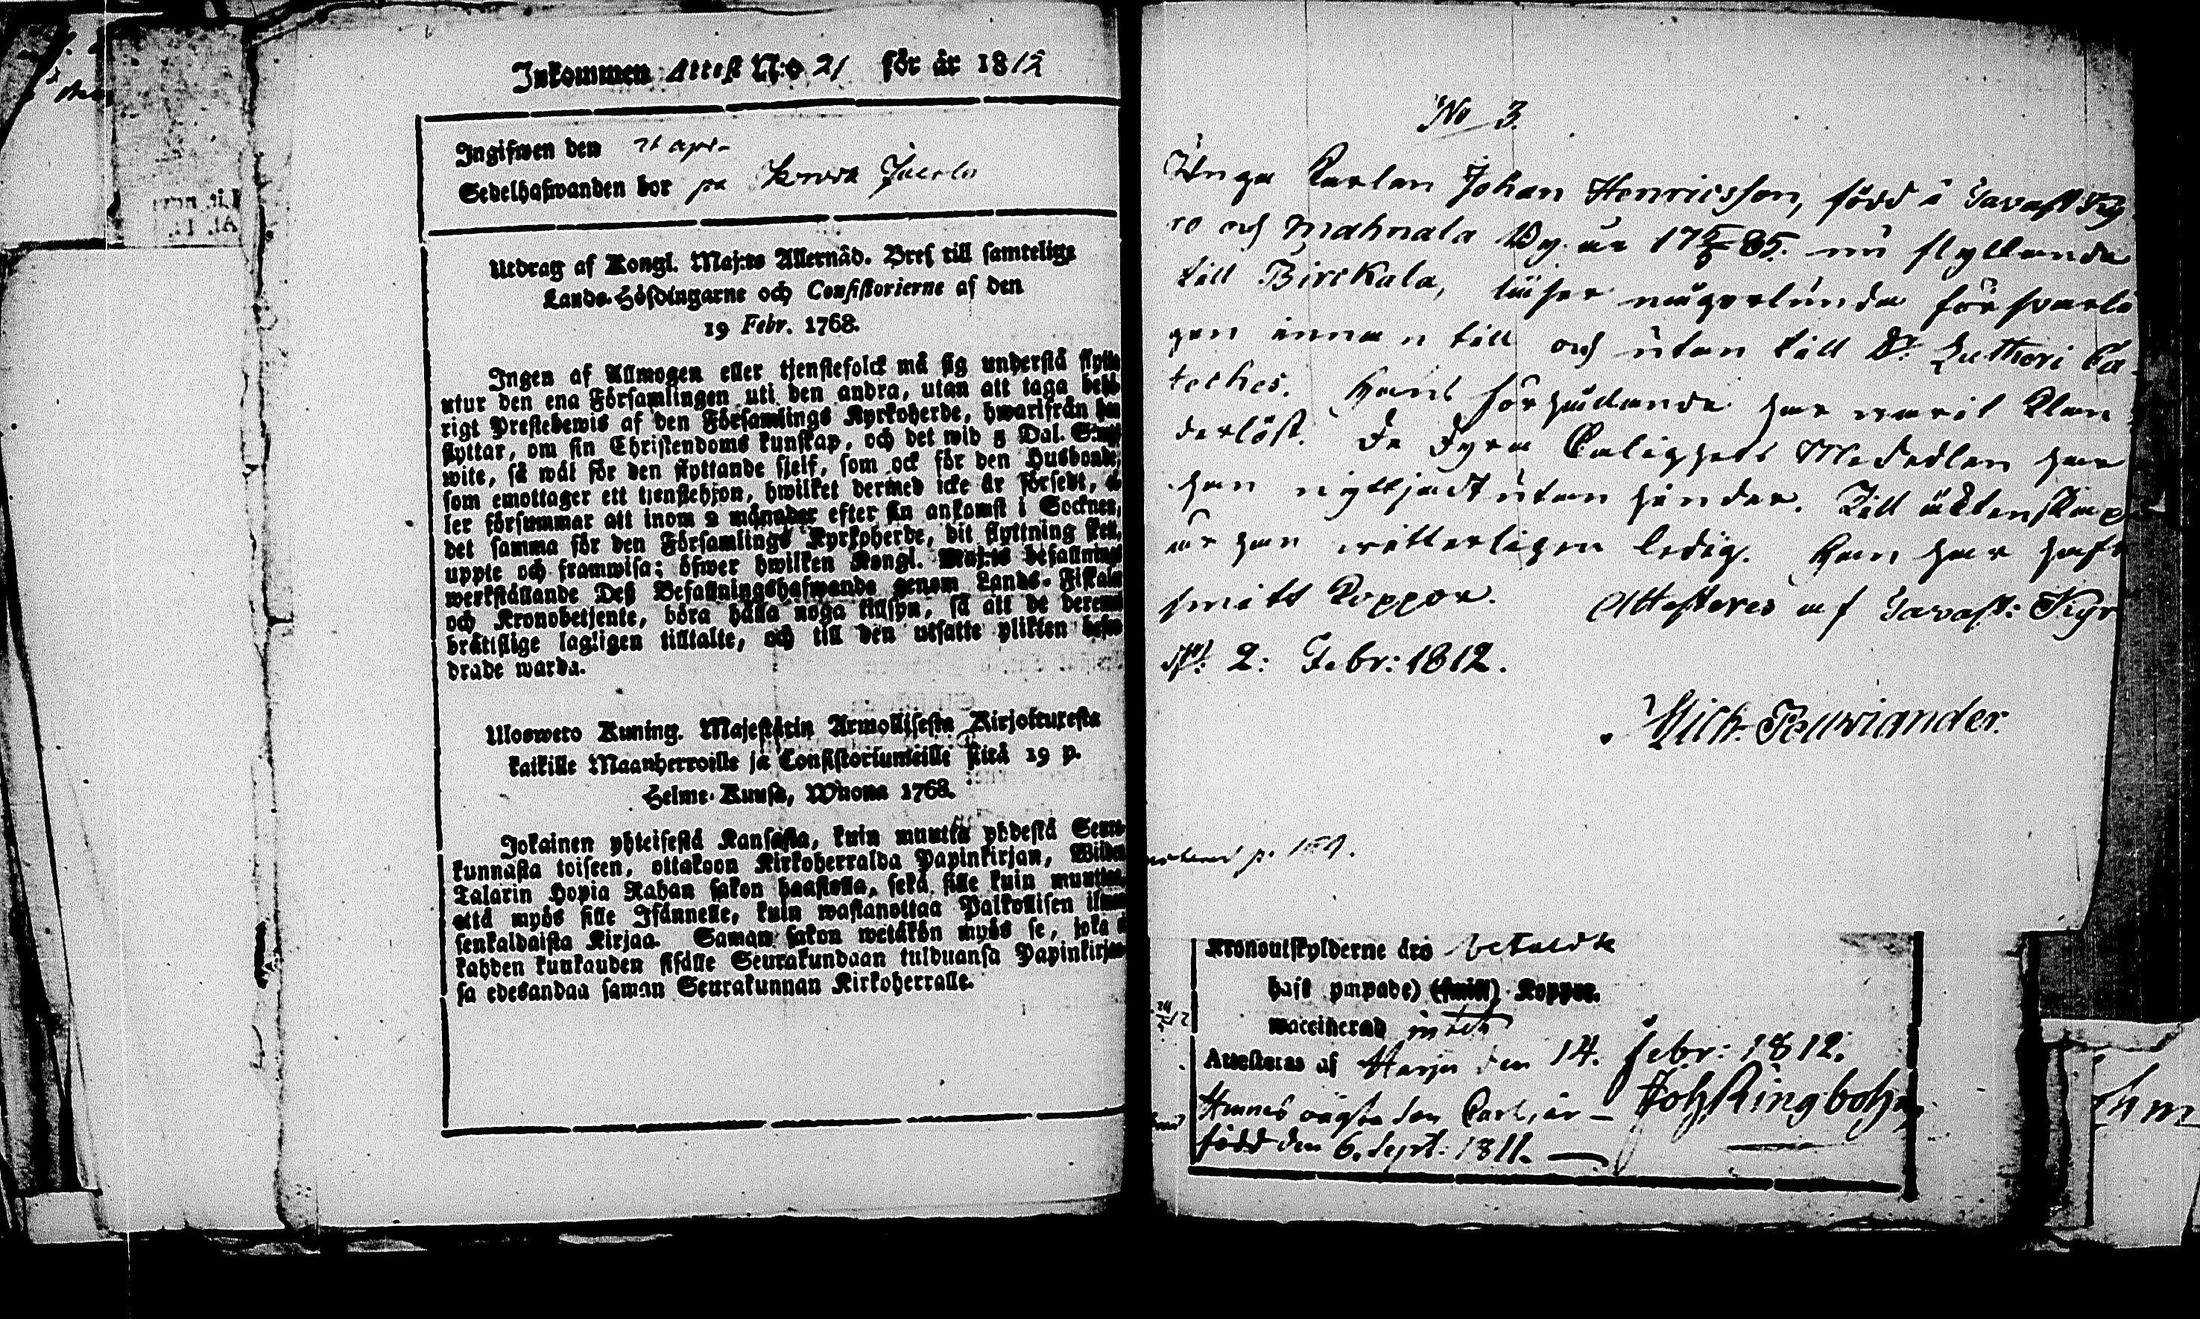 Inkommen Attest N:o 21 för år 1812
Ingifwen den 21 apr.
Sedelhafwanden bor på
Utdrag af Kongl. Maj:ts Allernåd. Bref till samtelige
Lands-Höfdingarne och Consistorierne af den
19 Febr. 1768.
Ingen af Allmogen eller tjenstefolck må sig understå flytta
utur den ena Församlingen uti den andra, utan att taga behö-
rigt Prestebewis af den Församlings Kyrkoherde, hwarifrån han
flyttar, om sin Christendoms kunskap, och det wid 5 Dal. S:mt
wite, så wäl för den flyttande sielf, som ock för den Husbonde,
som emottager ett tienstehjon, hwilket dermed icke är försedt, el-
ler försummar att inom 2 månader efter sin ankomst i Socknen,
det samma för den Församlings Kyrkoherde, dit flyttning skett,
uppte och framwisa; öfwer hwilken Kongl. Maj:ts befallnings
werkställande Deß Befallningshafwande genom Lands-Fiskaler
och Kronobetjente, böra hålla noga tillsyn, så att de deremot
bråttslige lagligen tilltalte, och till den utsatte plikten befor-
drade warda.
Ulosweto Kuning. Majestätin Armollisesta Kirjoituxesta
kaikille Maanherroille ja Consistoriumeille siitä 19 p.
Helme-Kuusa, Wuona 1768.
Jokainen yhteisestä Kansasta, kuin muutta yhdestä Seura-
kunnasta toiseen, ottakoon Kirkoherralda Papinkirjan, Wiiden
Talarin Hopia Rahan sakon haastolla, sekä sille kuin muuttaa
että myös sille Isännelle, kuin wastanottaa Palkollisen ilman
senkaldaista Kirjaa. Saman sakon wetäkön myös se, joka ei
kahden kuukauden sisälle Seurakundaan tulduansa Papinkirjaan-
sa edesandaa saman Seurakunnan Kirkoherralle.
No 3.
Unga Karlen Johan Henricsson, född i Tavast Ky
ro och Mahnala By år 17 85. nu flyttande
till Birckala, läser någorlunda försvarli
gen innan till och utan till Dr. Lutheri Ca-
teches. Hans förhållande har warit klan
derlöst. De dyra Salighets Medadlen har
han nyttjadt utan hinder. Till äktenskap
är han witterligen ledig. Han har haft
smitt Koppor. Attesteres af Tavast: Kyr
2: Febr: 1812.
Mich. Pollviander.
noterad p. 154.
Kronoutskylderne äro betaldte
haft ympade) (smitt) Koppor.
waccinerad
Attesteras af Harju den 14. Febr: 1812.
Hennes oägta Son Carl, är - Joh Ringbohm
född den 6. Sept: 1811.